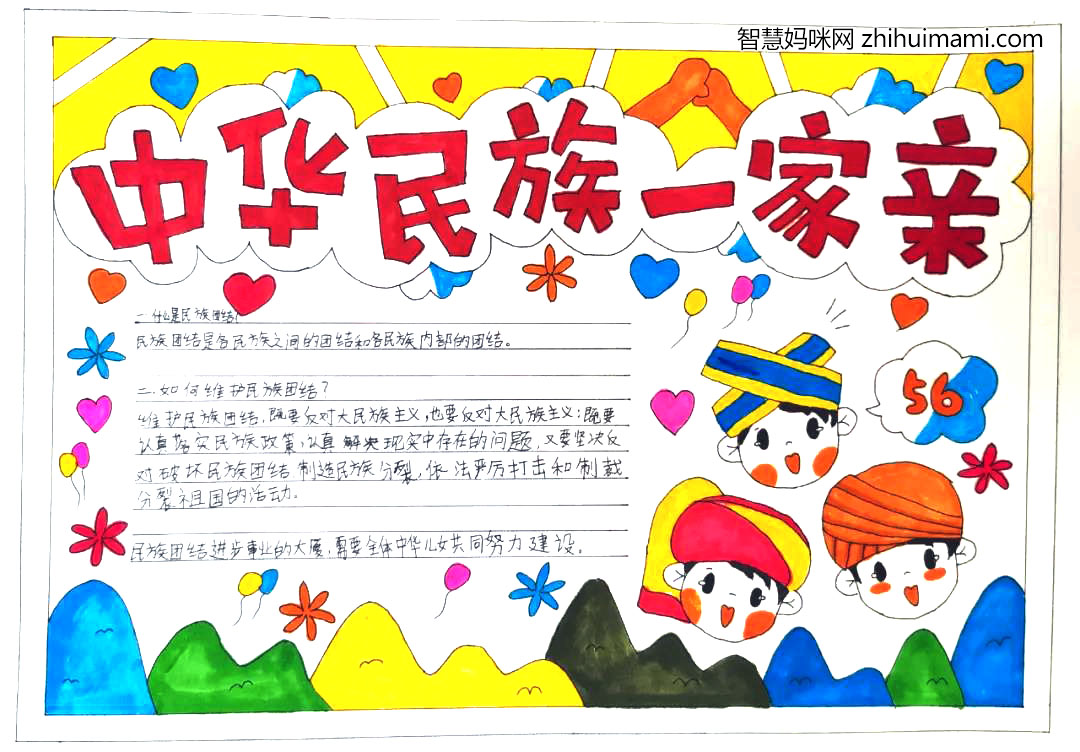 智慧妈咪网 zhihuimami.com
中华民族一家亲
一.什么是民族团结?
民族团结是各民族之间的团结和各民族内部的团结。
56
二.如何维护民族团结?
维护民族团结,既要反对大民族主义,也要反对大民族主义;既要
认真落实民族政策,认真解决现实中存在的问题,又要坚决反
对破坏民族团结 制造民族分裂,依法严厉打击和制裁
分裂祖国的活动。
民族团结进步事业的大厦,需要全体中华儿女共同努力建设。